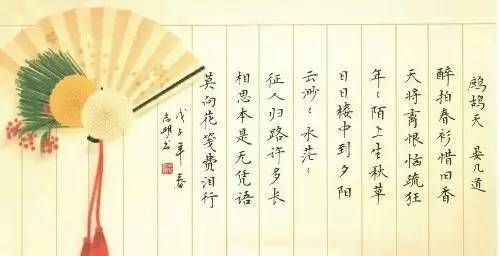 鹧鸪天 晏几道
醉拍春衫惜旧香
天将离恨恼疏狂
年〻陌上生秋草
日日楼中到夕阳
云渺〻水茫〻
征人归路许多长
相思本是无凭语
莫向花笺费泪行
戊子年 春
志明书